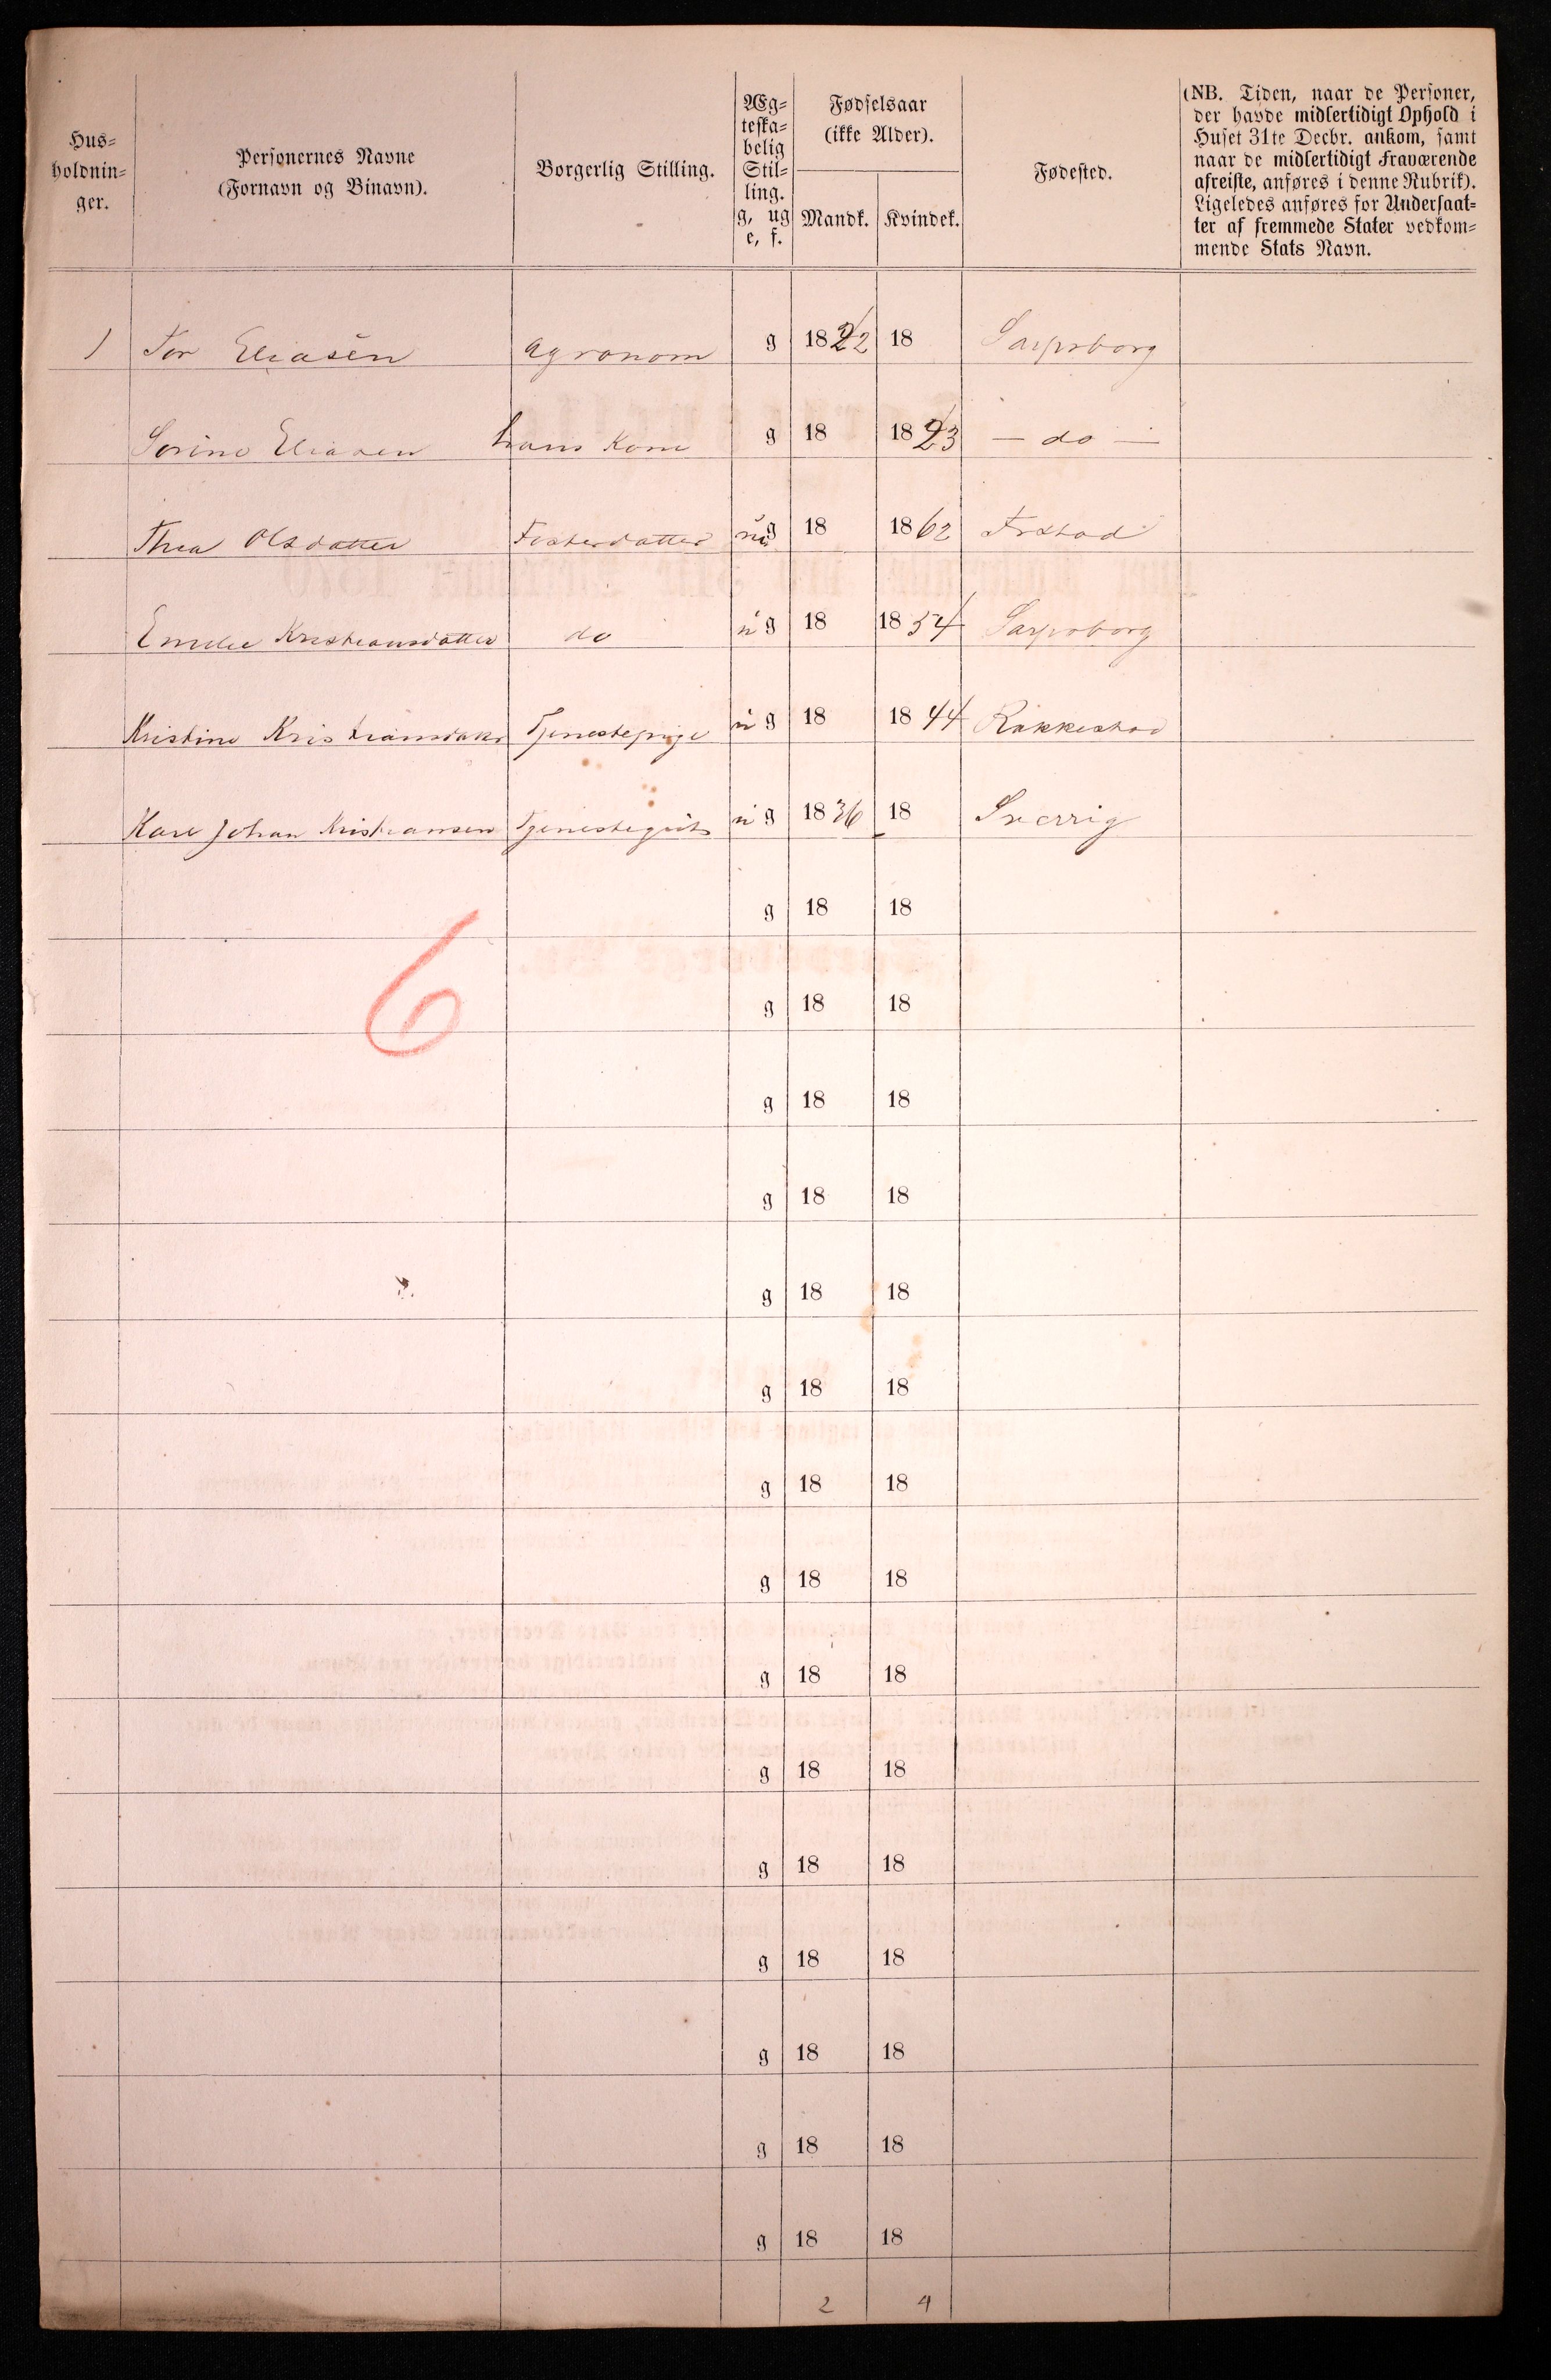 Hus=
holdnin=
ger.
Personernes Navne
(Fornavn og Binavn).
Borgerlig Stilling.
Æg=
teska=
belig
Stil=
ling.
g, ug
e, f.
Fødselsaar
(ikke Alder).
Mandk. Kvindek.
Fødested.
(NB. Tiden, naar de Personer,
der havde midlertidigt Ophold i
Huset 31te Decbr. ankom, samt
naar de midlertidigt Fraværende
afreiste, anføres i denne Rubrik).
Ligeledes anføres for Undersaat=
ter af fremmede Stater vedkom=
mende Stats Navn.
1 Tor Eliasen agronom g 1822 18 Sarpsborg
Sorine Eliasen hans Kone g 18 1823 — do —
Thea Olsdatter Fosterdatter ug 18 1862 Frstad
Emelie Kristiansdatter do ug 18 1854 Sarpsborg
Kristine Kristiansdatr Tjenestepige ug 18 1844 Rakkestad
Karl Johan Kristiansen Tjenestegut ug 1836 18 Sverrig
g 18 18
6
g 18 18
g 18 18
g 18 18
g 18 18
g 18 18
g 18 18
g 18 18
g 18 18
g 18 18
g 18 18
g 18 18
g 18 18
g 18 18
g 18 18
2 4